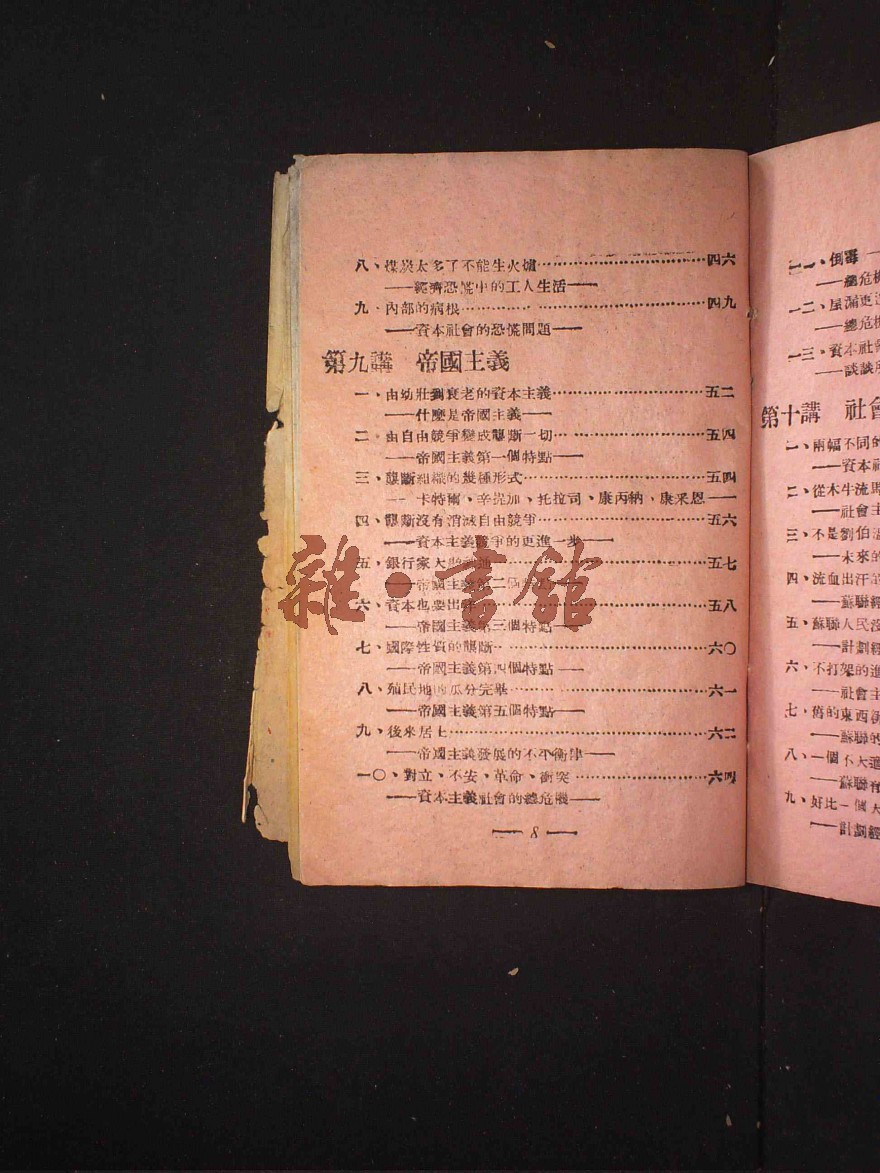 八、煤炭太多了不能生火爐……四六
——經濟恐慌中的工人生活——
九、內部的病根……四九
——資本社會的恐慌問題——
第九講 帝國主義
一、由幼壯到衰老的資本主義……五二
——什麼是帝國主義——
二、由自由競爭變成壟斷一切……五四
——帝國主義第一個特點——
三、壟斷組織的幾種形式……五四
——卡特爾、辛提加、托拉司、康丙納、康采恩——
四、壟斷沒有消滅自由競爭……五六
——資本主義競爭的更進一步——
五、銀行家大……五七
——帝國主義第二個特點——
六、資本也要出……五八
——帝國主義第三個特點——
七、國際性質的壟斷……六〇
——帝國主義第四個特點——
八、殖民地的瓜分完畢……六一
——帝國主義第五個特點——
九、後來居上……六二
——帝國主義發展的不平衡律——
一〇、對立、不安、革命、衝突……六四
——資本主義社會的總危機——
—— 8 ——
一一、倒霉——
——總危機
一二、屋漏更
——總危機
一三、資本社會
——談談
第十講 社會
一、兩幅不同的
——資本社
二、從木牛流馬
——社會主
三、不是劉伯溫
——未來的
四、流血出汗
——蘇聯經
五、蘇聯人民沒
——計劃經
六、不打架的進
——社會主
七、舊的東西新
——蘇聯的
八、一個不大
——蘇聯有
九、好比一個大
——計劃經
雜·書館